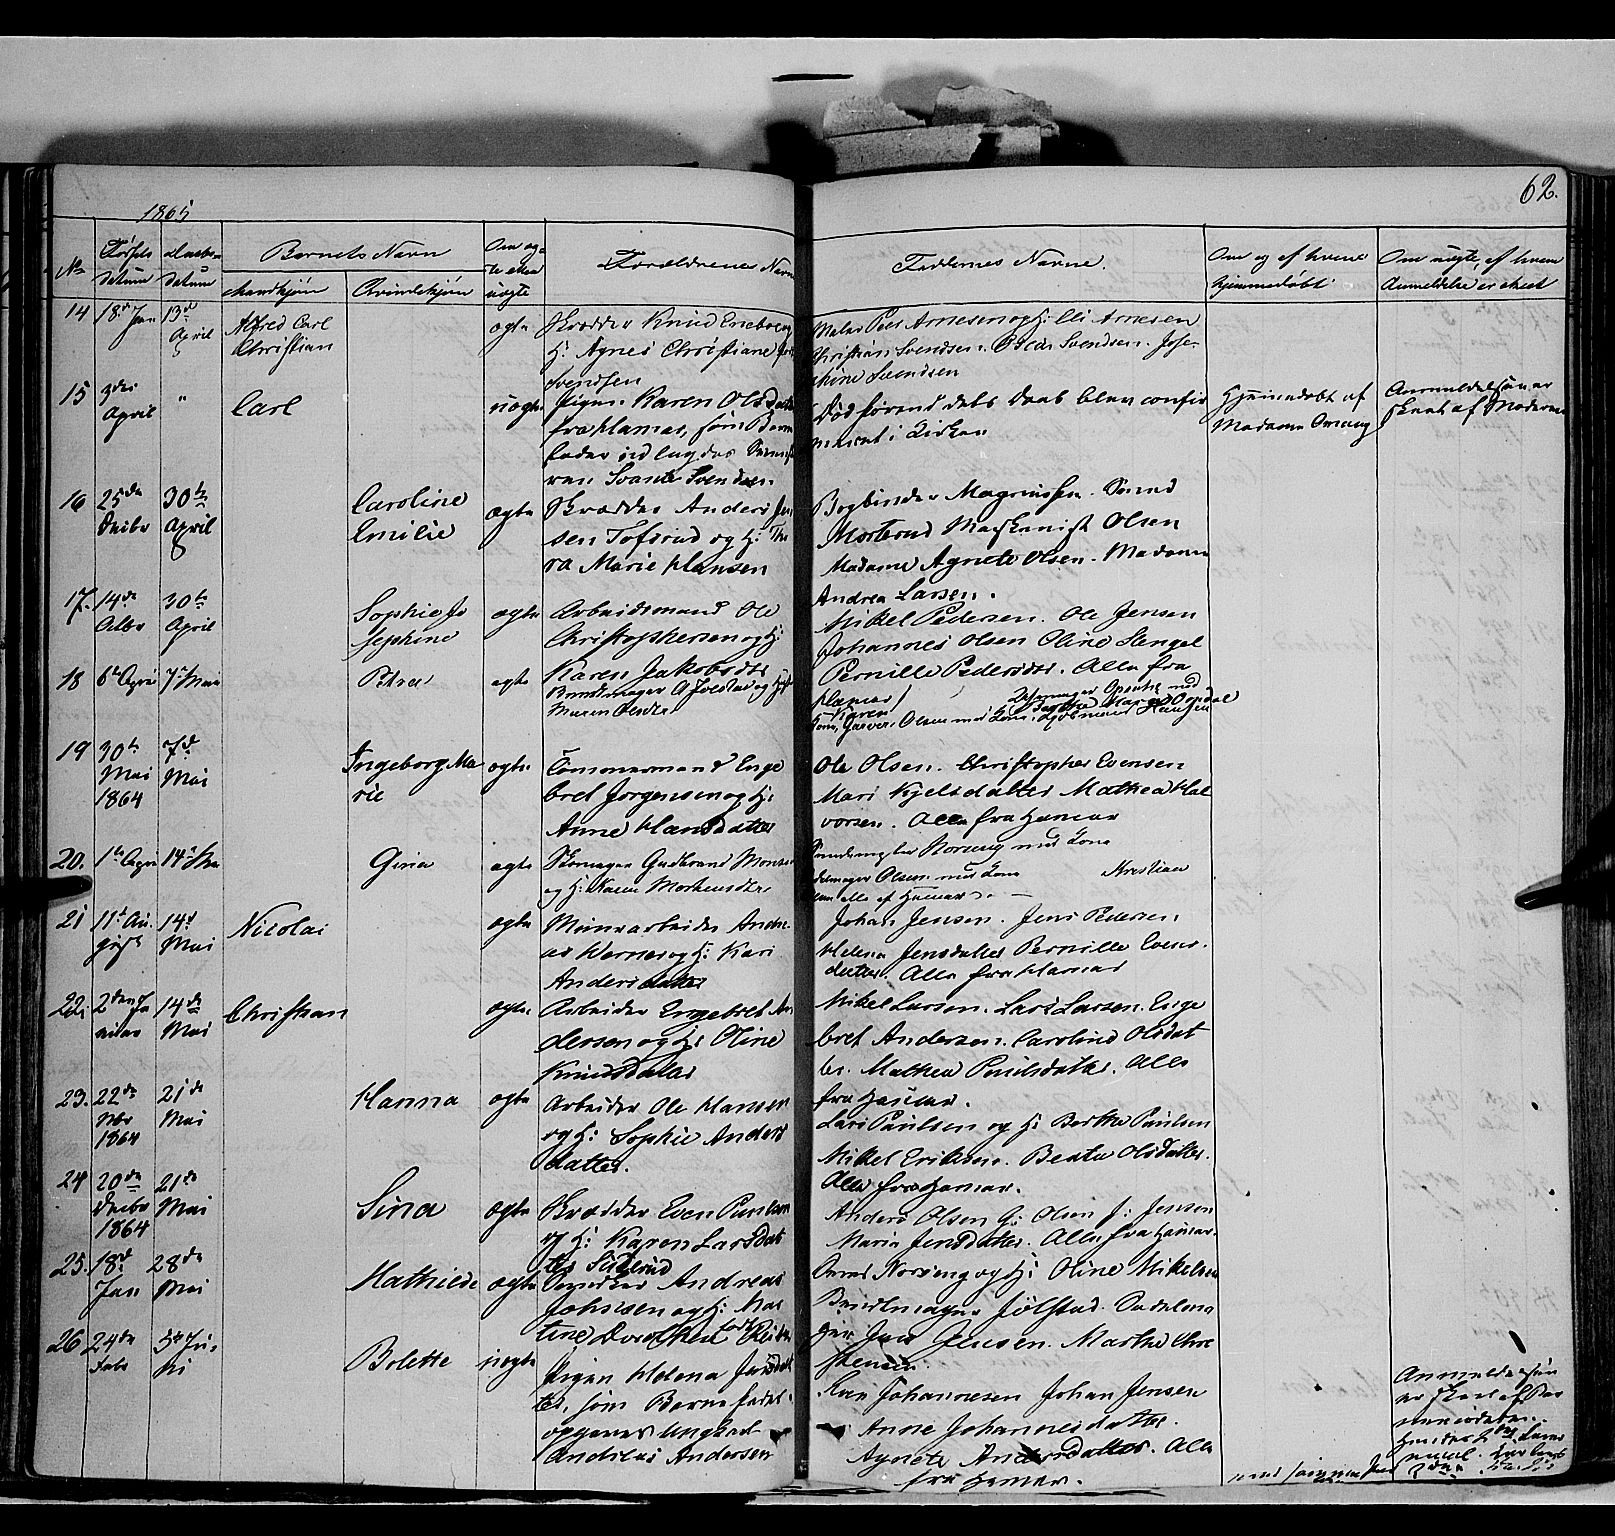 62.
1865
No Fødsels Daabs- Barnets Navn Om æg- Forældrenes Navne
datum datum Mandkjøn Qvindekjøn te eller uægte
Faddernes Navne.
Om og af hvem
hjemmedøbt
Om uægte, af hvem
Anmeldelse er skeet
14 18de Jan 13de April
Alfred Carl
Christian
ægte
Skrædder Knud
H: Agnes Christiane
Svendsen
Maler Peder Arnesen og H: Arnesen
Christian Svendsen. Oscar Svendsen. Jose-
phine Svendsen
15 3die April "
Carl
uægte
Pigen Karen Olsdatter
fra Hamar, som Barne
fader udlagdes
Svante Svendsen.
Død førend dets Daab blev confir
meret i Kirken
Hjemmedøbt af
Madame
Anmeldelsen er
skeet af Moderen
16 25de Decbr 30te April
Caroline
Emilie
ægte
Skrædder Anders Jen
sen Tofsrud og H: Tho
ra Marie Hansen
Bogbinder Magnussen.
Morterud Maskenist Olsen
Madame Agnete Olsen. Madame
Andrea Larsen.
17. 14de Octbr 30te April
Sophie Jo
sephine
ægte
Arbeidsmand Ole
Christophersen og H:
Karen Jakobsdtr
Mikel Pedersen. Ole Jensen
Johannes Olsen Oline Stengel
Pernille Pedersdtr. Alle fra
Hamar
18 6te April 7de Mai
Petra
ægte
Buntmager O Jølstad og Hust
Maren Olsdtr
Garver Olsen med Kone,
19 30te Mai 1864 7de Mai
Ingeborg Ma
rie
ægte
Tømmermand Enge
bret Jørgensen og H:
Anne Hansdatter
Ole Olsen. Christopher Evensen
Mari Kjelsdatter Mathea Hal
vorsen. Alle fra Hamar
20. 1te April 14de Mai
Gina
ægte
Skomager Gudbrand Monsen
og H: Karen Mortensdtr.
med Kone
Olsen med Kone Kristian
alle af Hamar.
21 11te Au-
gust 14de Mai
Nicolai
ægte
Murarbeider Andre
as Werner og H: Kari
Andersdatter
Johan Jensen. Jens Pedersen.
Helena Jensdatter Pernille Evens-
datter. Alle fra Hamar
22. 2den Ja
nuar 14de Mai
Christian
ægte
Arbeider Engebret An
dersen og H: Oline
Knudsdatter
Mikel Larsen. Lars Larsen. Enge
bret Andersen. Caroline Olsdat
ter. Mathea Paulsdatter. Alle
fra Hamar.
23. 22de Nbr 1864 21de Mai
Hanna
ægte
Arbeider Ole Hansen
og H: Sophie Anders
datter.
Lars Paulsen og H: Berthe Paulsen
Mikel Eriksen. Beate Olsdatter.
Alle fra Hamar.
24 20de Decbr 1864 21de Mai
Sina
ægte
Skrædder Even Paulsen
og H: Karen Larsdat
ter
Anders Olsen G: Olsen J: Jensen
Maria Jensdatter. Alle fra Hamar.
25. 18de Jan 28de Mai
Mathilde
ægte
Andreas
Johnsen og H: Mar
tine Dorothea
og H: Oline Mikelsen
Buntmager Jølstad. Sadelma
ger Jens Jensen. Marthe Chri
stensen.
26 24de Febr 5te Ju-
ni
Bolette
uægte
Pigen Helena Jensdat
ter, som Barnefader
opgives Ungkarl
Andreas Andersen
Johannesen Johan Jensen
Anne Johannesdatter.
Agnete Andersdatter. Alle
fra Hamar.
Anmeldelsen
er skeet af